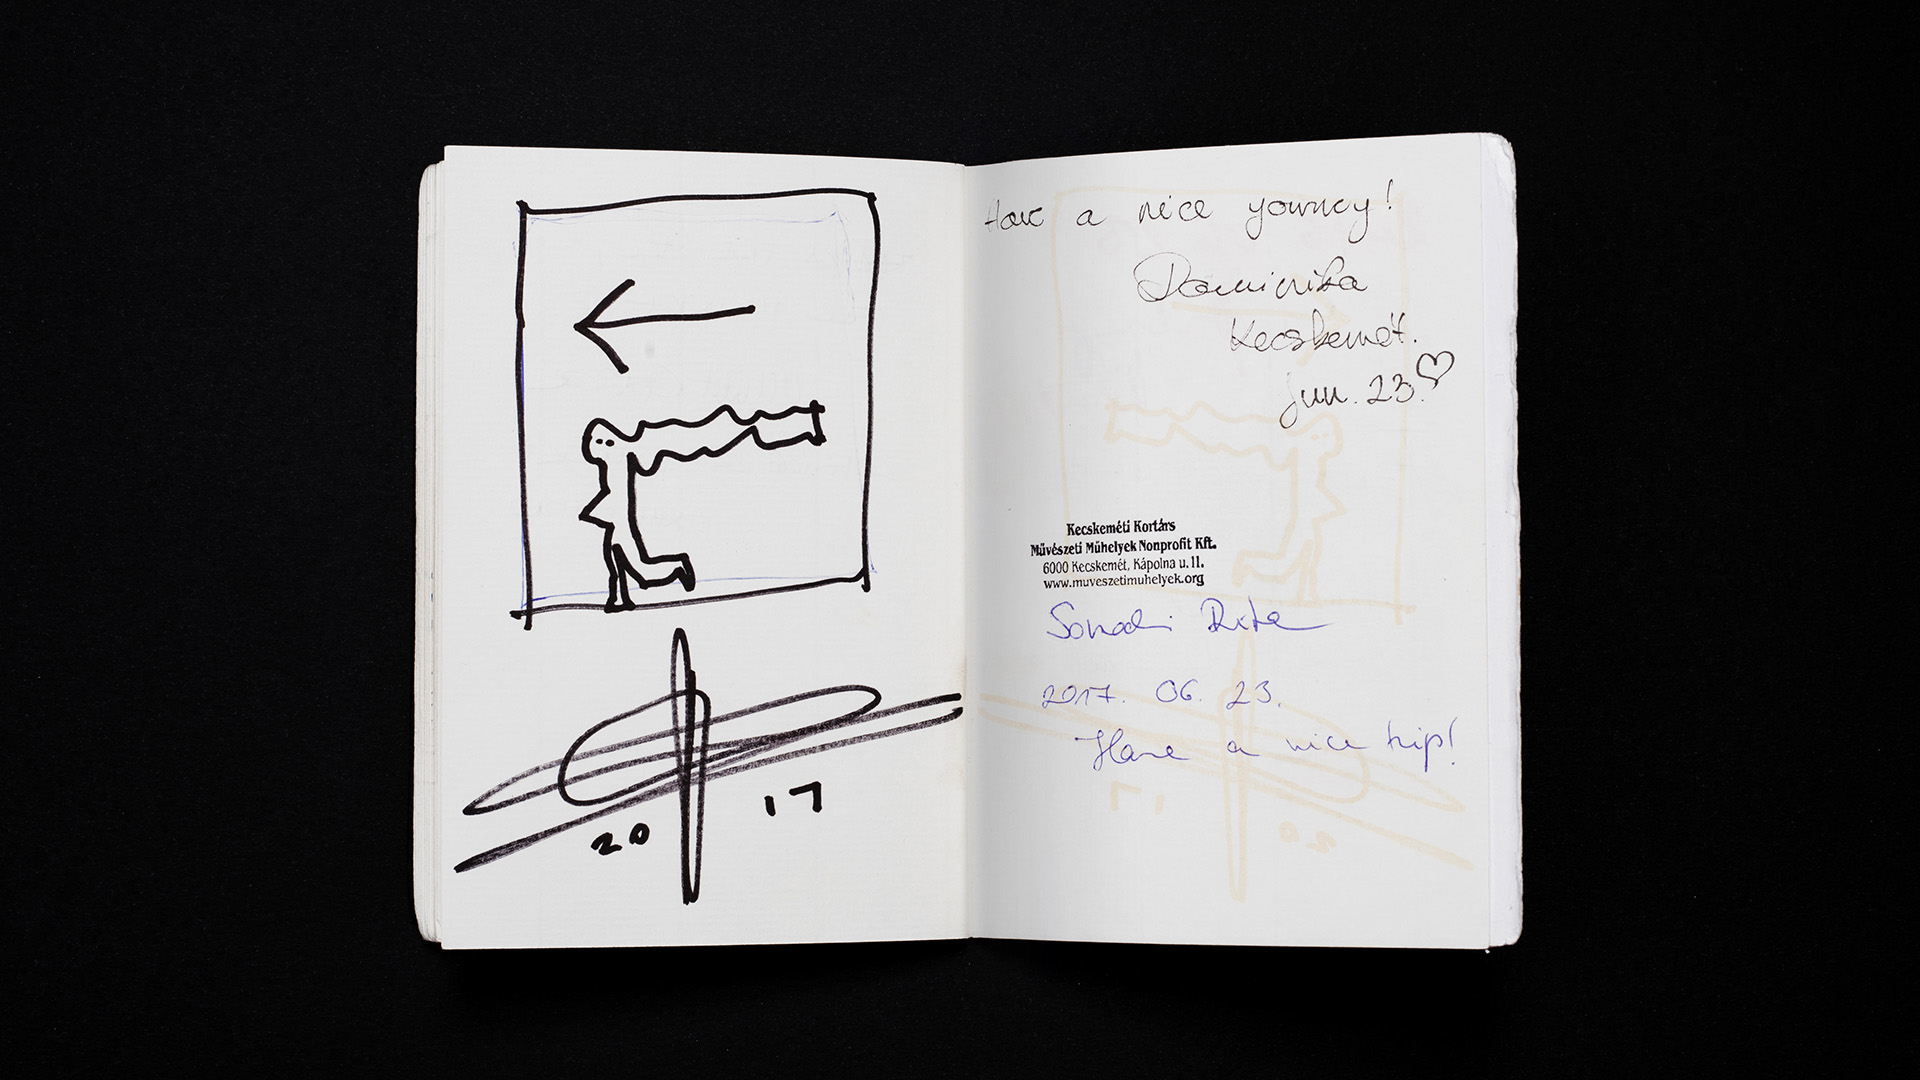 20 17
Have a nice yourney!
Dominika
Kecskemét.
Jun. 23.
Kecskeméti Kortárs
Művészeti Műhelyek Nonprofit Kft.
6000 Kecskemét, Kápolna u. 11.
www.muveszetimuhelyek.org
Rita
2017. 06. 23.
Have a nice trip!